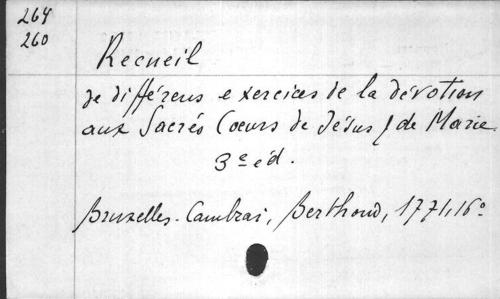 264
260
Recueil
de différens exercices de la dévotion
aux Sacrés Coeurs de Jésus & de Marie.
3e éd.
Bruxelles-Cambrai, Berthoud, 1771, 16°